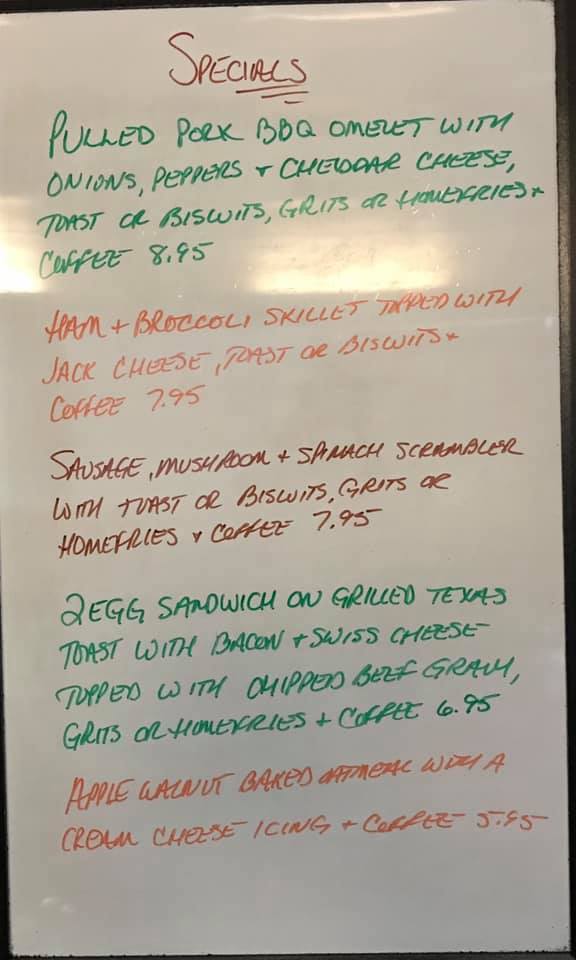 SPECIALS
PULLED PORK BBQ OMELET WITH
ONIONS, PEPPERS + CHEDDAR CHEESE,
TOAST OR BISCUITS, GRITS OR HOMEFRIES +
COFFEE 8.95
HAM + BROCCOLI SKILLET TOPPED WITH
JACK CHEESE, TOAST OR BISCUITS +
COFFEE 7.95
SAUSAGE, MUSHROOM + SPINACH SCRAMBLER
WITH TOAST OR BISCUITS, GRITS OR
HOMEFRIES + COFFEE 7.95
2 EGG SANDWICH ON GRILLED TEXAS
TOAST WITH BACON + SWISS CHEESE
TOPPED WITH CHIPPED BEEF GRAVY,
GRITS OR HOMEFRIES + COFFEE 6.95
APPLE WALNUT BAKED OATMEAL WITH A
CREAM CHEESE ICING + COFFEE 5.95